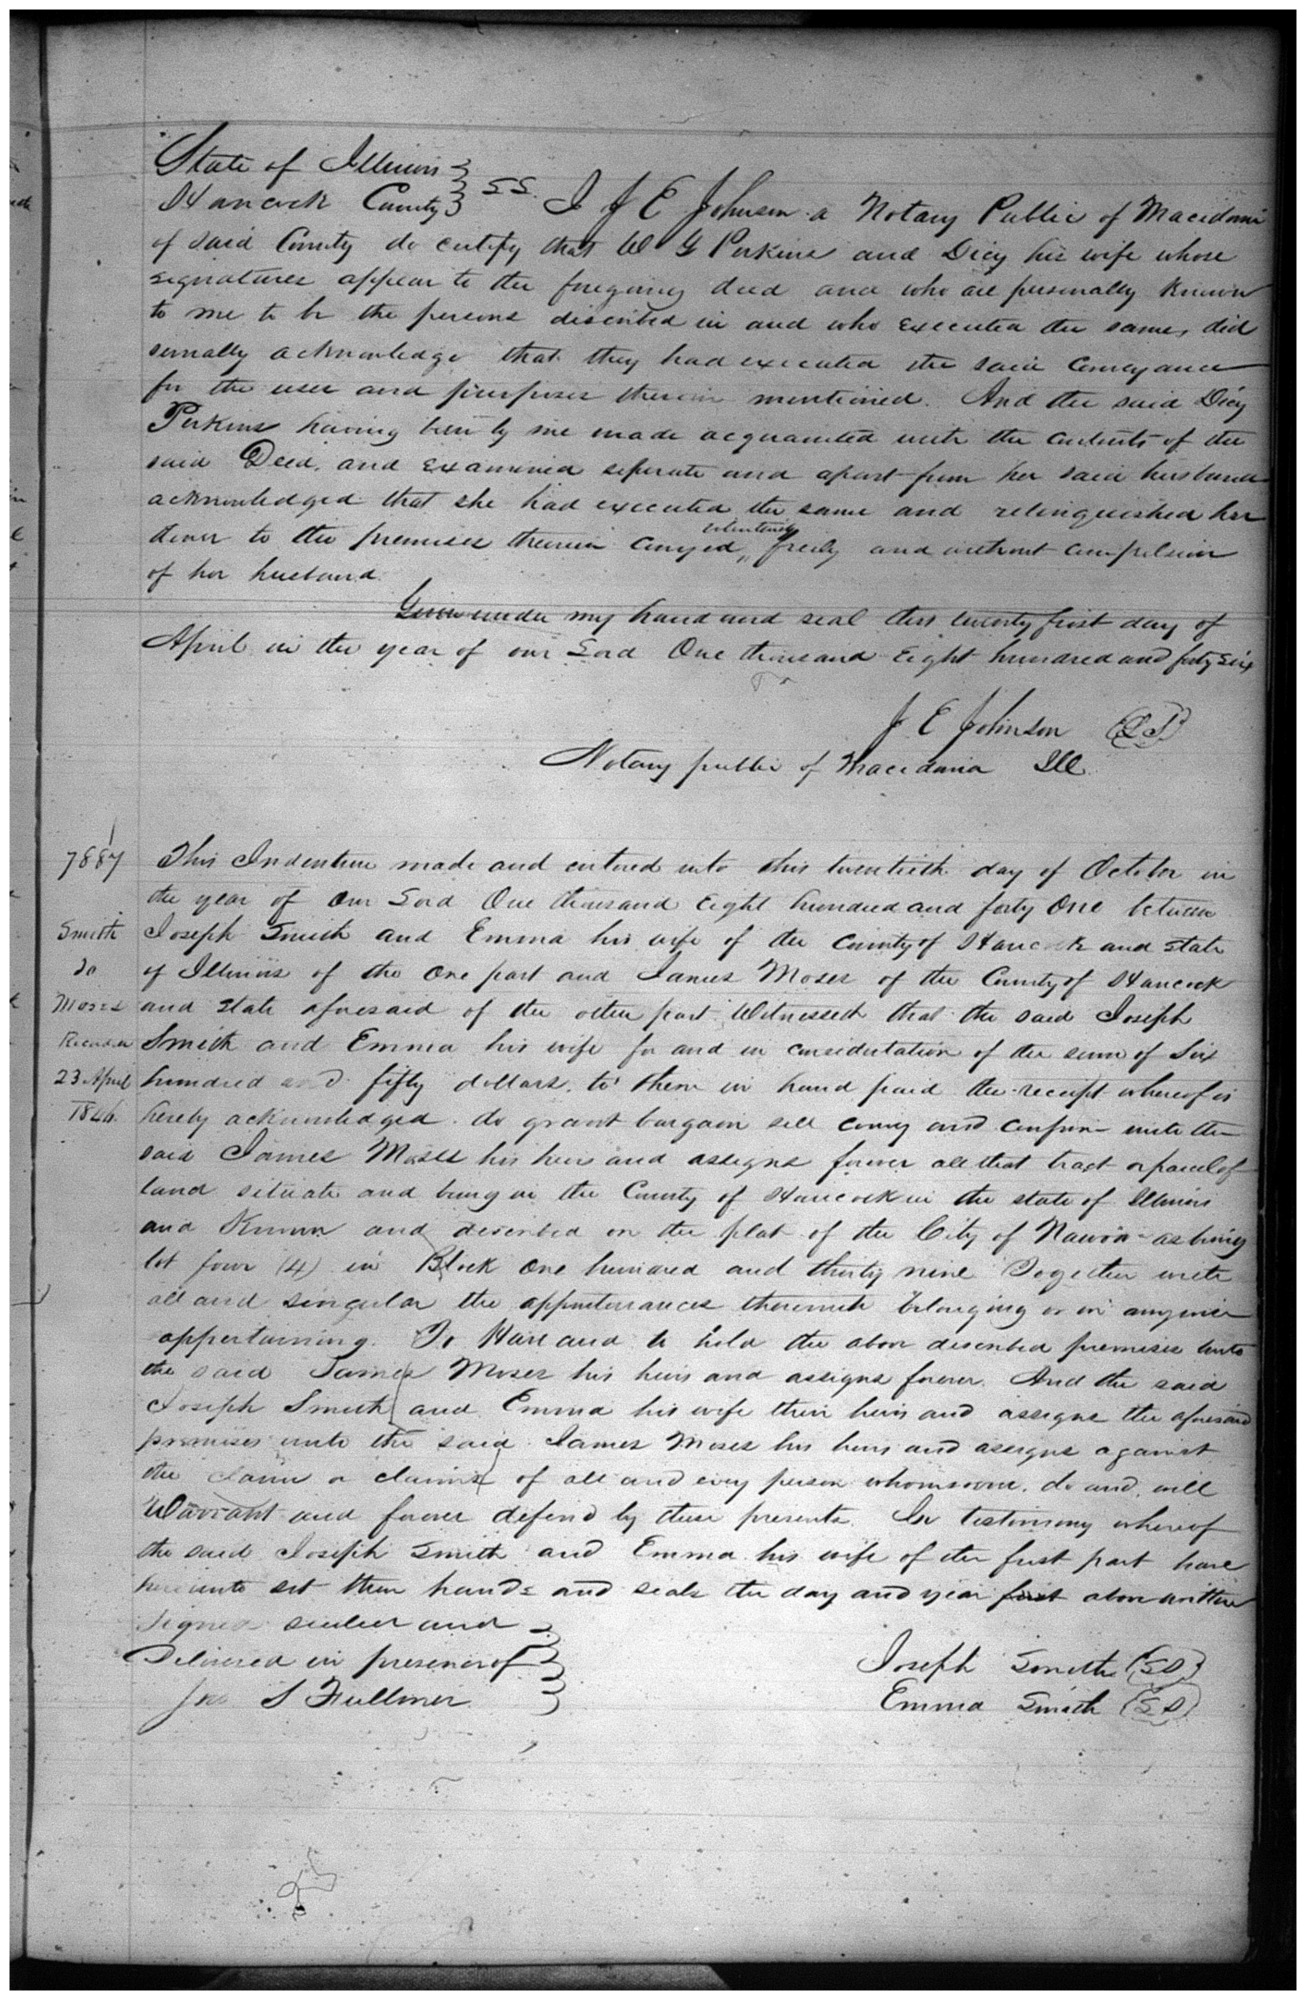 State of Illinois
Hancock County SS. I J E Johnson a Notary Public of Macidonia
of said County do certify that W G Perkins and Dicy his wife whose
signatures appear to the foregoing deed and who are personally known
to me to be the persons discribed in and who executed the same, did
sernally acknowledge that they had executed the said Conveyance
for the uses and purposes therein mentioned. And the said Dicy
Perkins having been by me made acquainted with the contents of the
said Deed, and examined seperate and apart from her said husband
acknowledged that she had executed the same and relinquished her
dower to the premises therein conveyed, voluntarily freely and without compulsion
of her husband
Given under my hand and seal this twenty first day of
April in the year of our Lord One thousand Eight hundred and forty six
J E Johnson (LS)
Notary public of Macidonia Ill.
7887 This Indenture made and entered into this twentieth day of October in
the year of our Lord One thousand Eight hundred and forty One between
Smith Joseph Smith and Emma his wife of the County of Hancock and state
To of Illinois of the One part and James Moses of the County of Hancock
Moses and state aforesaid of the other part. Witnesseth that the said Joseph
Recorded Smith and Emma his wife for and in considertation of the sum of Six
23 April hundred and fifty dollars. to them in hand paid the receipt whereof is
1846. hereby acknowledged. do grant bargain sell convey and confirm unto the
said James Moses his heirs and assigns forever all that tract or parcel of
land situate and being in the County of Hancock in the state of Illinois
and Known and described on the plat of the City of Nauvoo as being
lot four (4) in Block One hundred and thirty nine Together with
all and singular the appurtenances thereunto belonging or in anywise
appertaining. To Have and to hold the above described premises unto
the said James Moses his heirs and assigns forever. And the said
Joseph Smith and Emma his wife their heirs and assigns the aforesaid
premises unto the said James Moses his heirs and assigns against
the claim or claims of all and every person whomsoever. do and will
Warrant and forever defend by these presents. In testimony whereof
the said Joseph Smith and Emma his wife of the first part have
hereunto set their hands and seals the day and year first above written
Signed sealed and
Delivered in presence of Joseph Smith (SS)
Jno S Fullmer Emma Smith (SS)